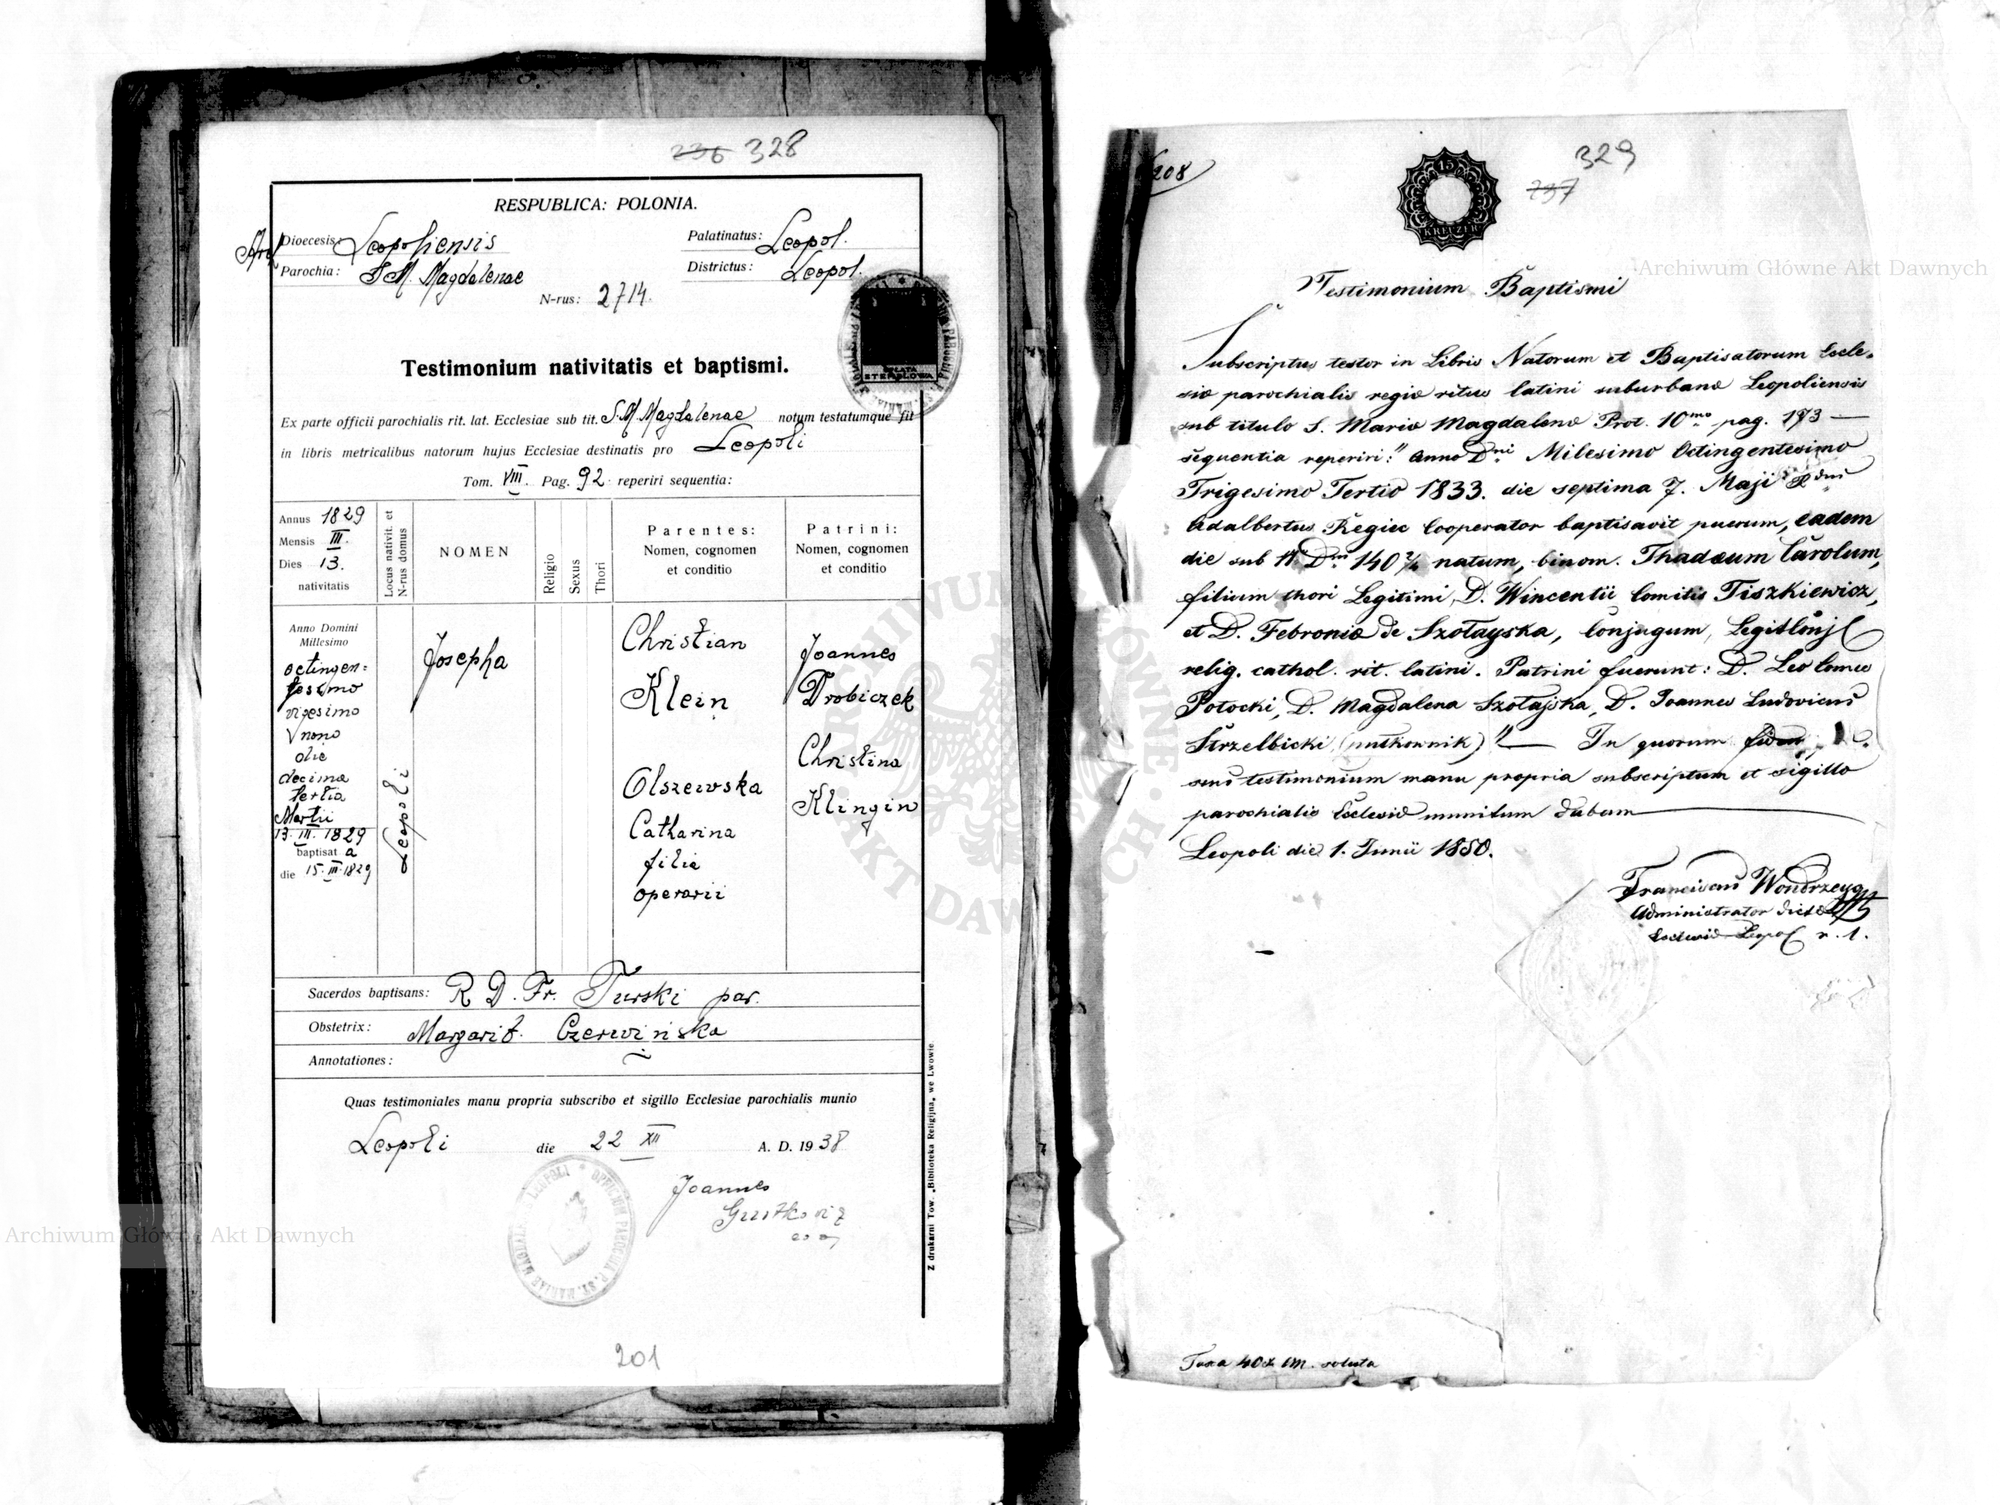 236 328
RESPUBLICA: POLONIA.
Arch Dioecesis: Leopoliensis
Palatinatus: Leopol.
Parochia: S. M. Magdalenae
Districtus: Leopol.
N-rus: 2714.
OPŁATA
STEMPLOWA
Testimonium nativitatis et baptismi.
Ex parte officii parochialis rit. lat. Ecclesiae sub tit. S. M. Magdalenae notum testatumque fit
in libris metricalibus natorum hujus Ecclesiae destinatis pro Leopoli
Tom. VIII. Pag. 92 reperiri sequentia:
Annus 1829
Mensis III.
Dies 13.
nativitatis
Locus nativit. et
N-rus domus
NOMEN
Religio
Sexus
Thori
Parentes:
Nomen, cognomen
et conditio
Patrini:
Nomen, cognomen
et conditio
Anno Domini
Millesimo
octingen=
tesimo
vigesimo
nono
die
decima
tertia
Martii
13. III. 1829
baptisata
die 15. III. 1829
Leopoli
Josepha
Christian
Klein
Olszewska
Catharina
filia
operarii
Joannes
Drobiczek
Christina
Klingin
Sacerdos baptisans: R. D. Fr. Turski par.
Obstetrix: Margarit. Czerwińska
Annotationes:
Quas testimoniales manu propria subscribo et sigillo Ecclesiae parochialis munio
Leopoli die 22 XII A. D. 1938
Joannes
Z drukarni Tow. „Biblioteka Religijna„ we Lwowie
201
208
15
KREUZER
329
237
Testimonium Baptismi
Subscriptus testor in Libris Natorum et Baptisatorum Eccle-
siæ parochialis regiæ ritus latini suburbanæ Leopoliensis
sub titulo S. Mariæ Magdalenæ Prot. 10mo pag. 173 —
sequentia reperiri: " Anno Dni Milesimo Octingentesimo
Trigesimo Tertio 1833. die septima 7. Maji
Adalbertus Regiec Cooperator baptisavit puerum, eadem
die sub No Dm 140 2/4 natum, binom. Thadæum Carolum,
filium thori Legitimi, D. Wincentii Comitis Tiszkiewicz,
et D. Febroniæ de Szołayska, Conjugum,
relig. cathol. rit. latini. Patrini fuerunt: D. Leo Comes
Potocki, D. Magdalena Szołajska, D. Joannes Ludovicus
Strzelbicki (pułkownik)" — In quorum fidem
sens testimonium manu propria subscriptum et sigillo
parochialis Ecclesiæ munitum dabam
Leopoli die 1. Junii 1850.
Franciscus
Administrator dictæ
Ecclesiæ Leopol r. l.
Taxa 40 x CM. soluta
Archiwum Główne Akt Dawnych
Archiwum Główne Akt Dawnych
ARCHIWUM GŁÓWNE AKT DAWNYCH